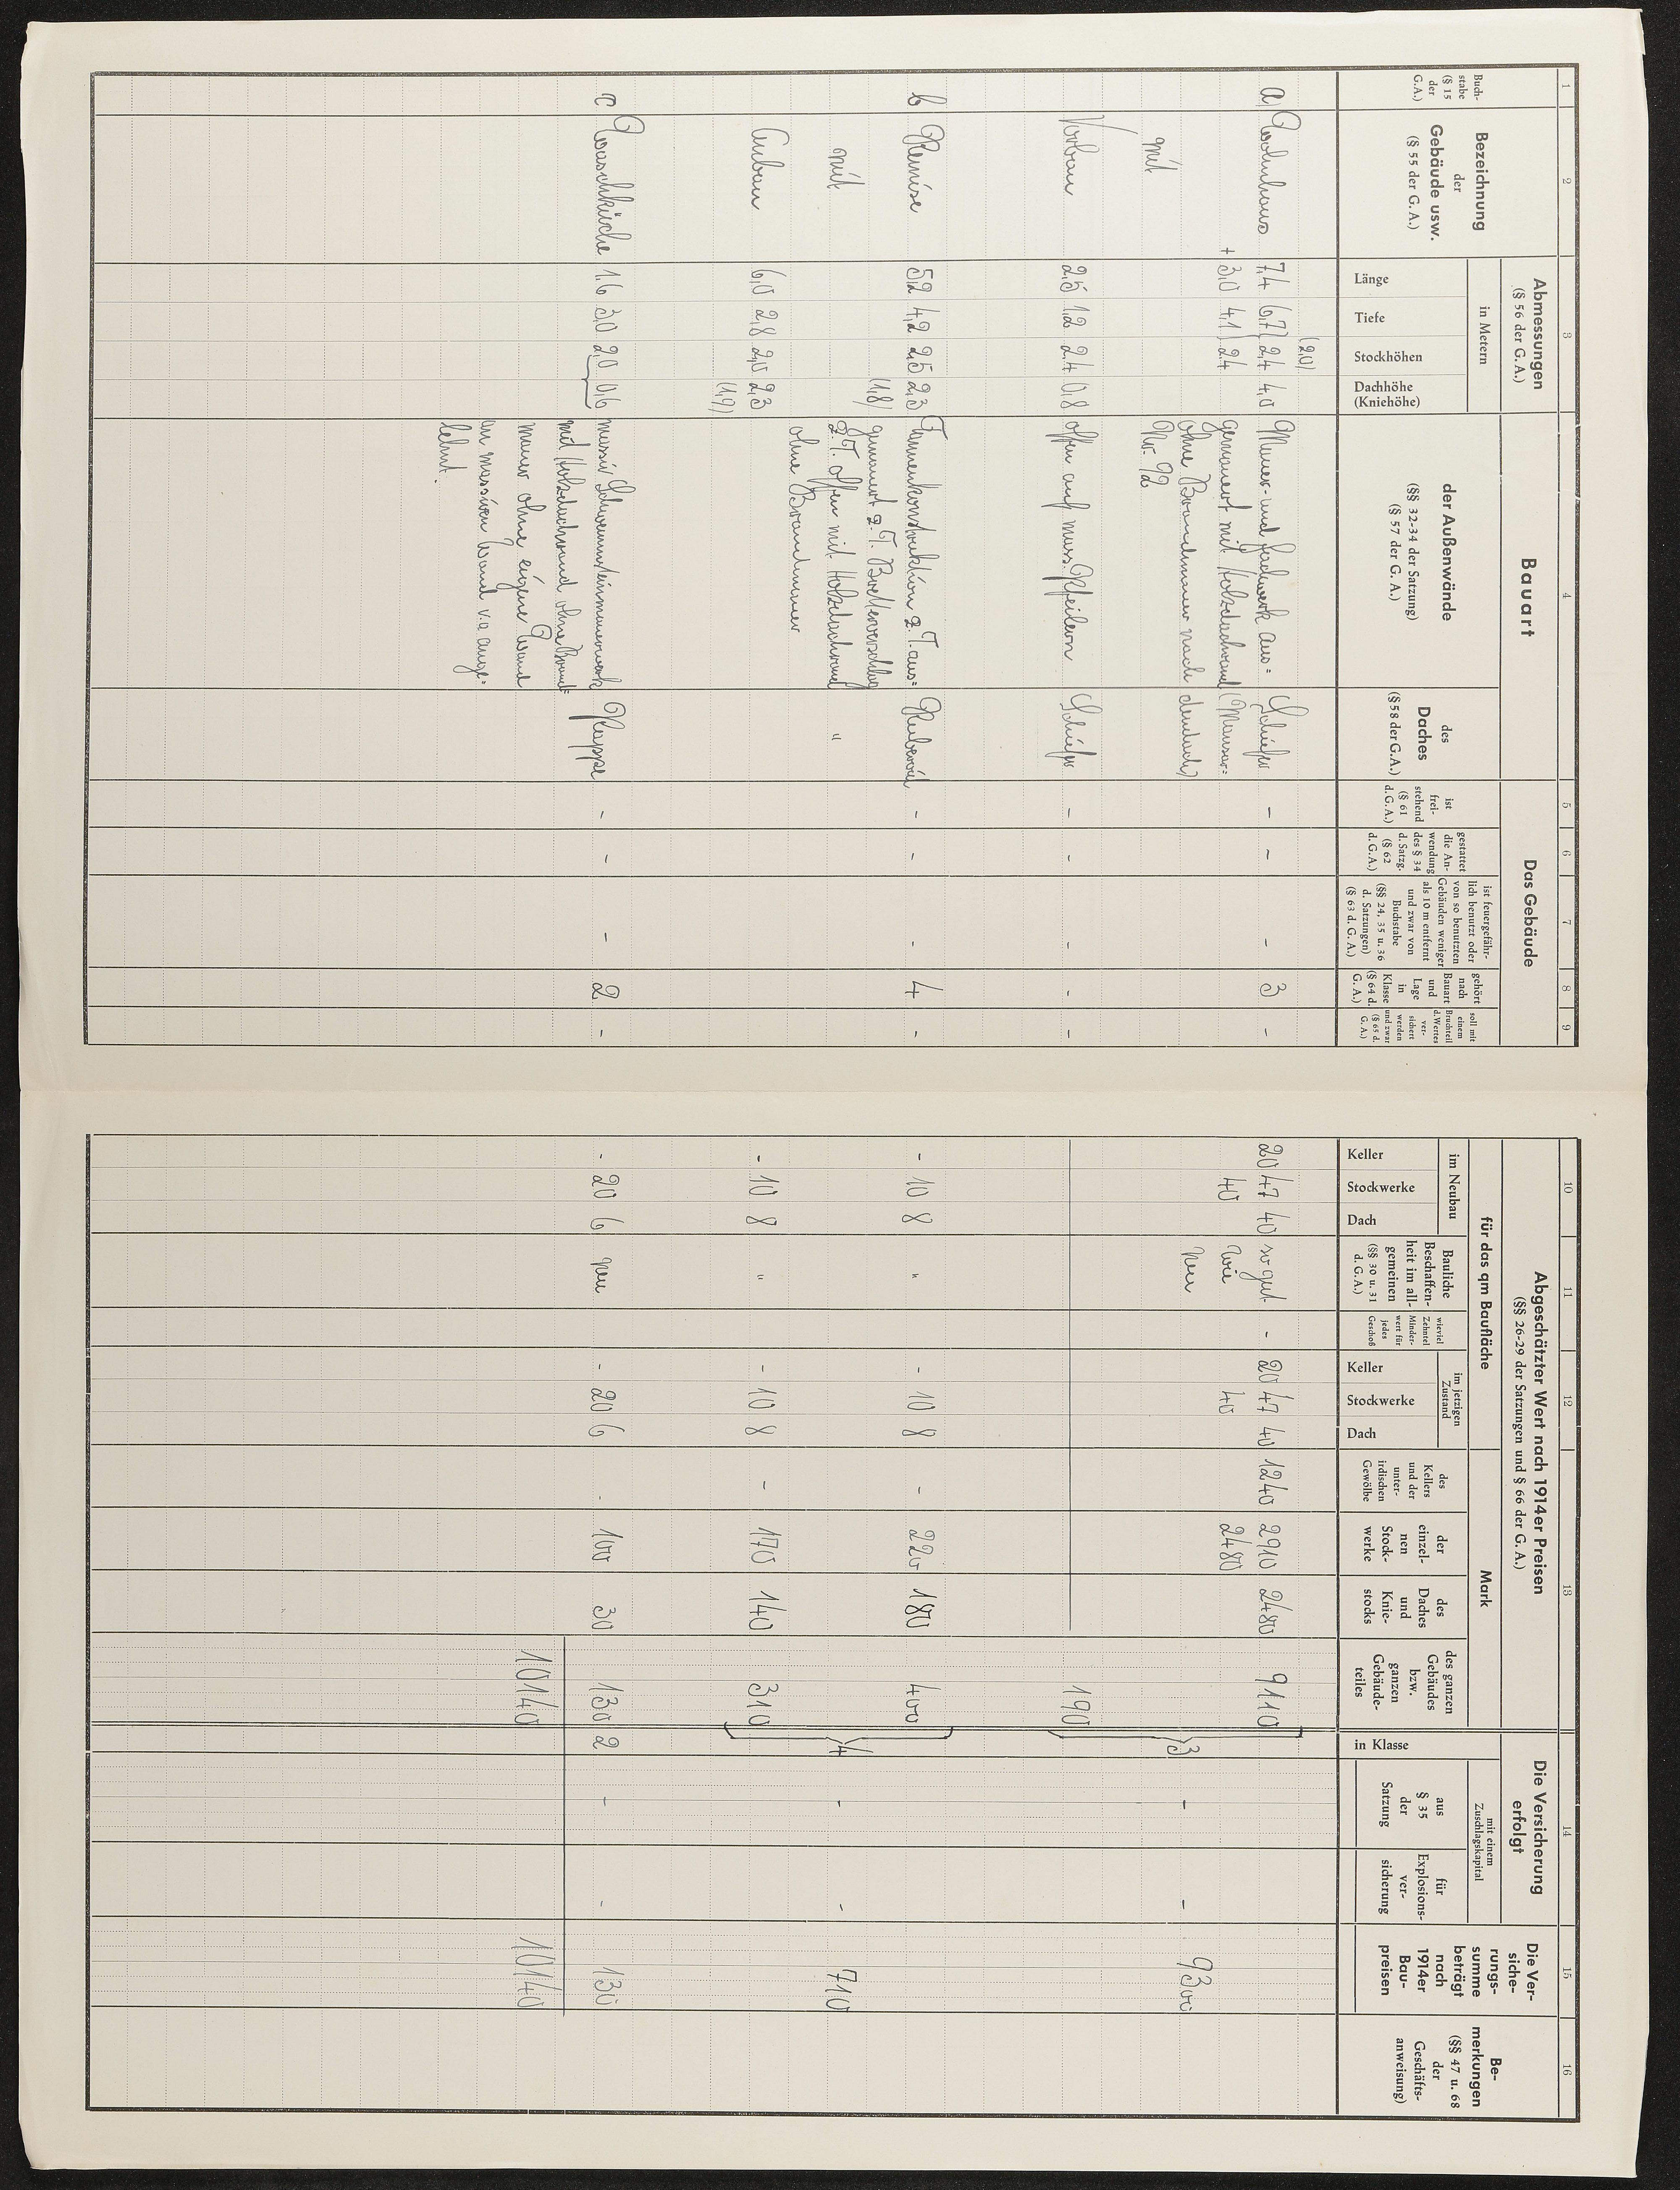 1 2 3 4 5 6 7 8 9
Buch-
stabe
(§ 15
der
G.A.)
Bezeichnung
der
Gebäude usw.
(§ 55 der G. A.)
Abmessungen
(§ 56 der G. A.)
in Metern
Länge
Tiefe
Stockhöhen
Dachhöhe
(Kniehöhe)
Bauart
der Außenwände
(§§ 32-34 der Satzung)
(§ 57 der G. A.)
des
Daches
(§ 58 der G. A.)
Das Gebäude
ist
frei-
stehend
(§ 61
d. G. A.)
gestattet
die An-
wendung
des § 34
d. Satzg.
(§ 62
d. G. A.)
ist feuergefähr-
lich benutzt oder
von so benutzten
Gebäuden weniger
als 10 m entfernt
und zwar von
Buchstabe
(§§ 24, 35 u. 36
d. Satzungen)
(§ 63 d. G. A.)
gehört
nach
Bauart
und
Lage
in
Klasse
(§ 64 d.
G. A.)
soll mit
einem
Bruchteil
d. Wertes
ver-
sichert
werden
und zwar
(§ 65 d.
G. A.)
(2,0)
a Wohnhaus 7,4 6,7) 2,4 4,0 Mauer- und Fachwerk aus= Schiefer - - - 3 -
+ 3,0 4,1) 2,4 gemauert mit Holzdachrand (Mansar=
ohne Brandmauer nach dendach)
mit Nr. 92
Vorbau 2,5 1,2 2,4 0,8 offen auf mass. Pfeilern Schiefer - - - - -
b Remise 5,2 4,2 2,5 2,3 Tannenkonstruktion z.T. aus= Ruberoid - - - 4 -
(1,8) gemauert z.T. Bretterverschlag
mit z.T. offen mit Holzdachrand "
ohne Brandmauer
Anbau 6,0 2,8 2,0 2,3
(1,9)
c Waschküche 1.6 3,0 2,0 0,6 massiv Schwemmsteinmauerwerk Pappe - - - 2 -
mit Holzdachrand ohne Brand=
mauer ohne eigene Wand
an massiven Wand v.a ange-
lehnt.
10 11 12 13 14 15 16
Abgeschätzter Wert nach 1914er Preisen
(§§ 26-29 der Satzungen und § 66 der G. A.)
für das qm Baufläche
im Neubau
Keller
Stockwerke
Dach
Bauliche
Beschaffen-
heit im all-
gemeinen
(§§ 30 u. 31
d. G. A.)
wieviel
Zehntel
Minder-
wert für
jedes
Geschoß
im jetzigen
Zustand
Keller
Stockwerke
Dach
Mark
des
Kellers
und der
unter-
irdischen
Gewölbe
der
einzel-
nen
Stock-
werke
des
Daches
und
Knie-
stocks
des ganzen
Gebäudes
bzw.
ganzen
Gebäude-
teiles
Die Versicherung
erfolgt
in Klasse
mit einem
Zuschlagskapital
aus
§ 35
der
Satzung
für
Explosions-
ver-
sicherung
Die Ver-
siche-
rungs-
summe
beträgt
nach
1914er
Bau-
preisen
Be-
merkungen
(§§ 47 u. 68
der
Geschäfts-
anweisung)
20 47 40 so gut - 20 47 40 1240 2910 2480 9110
40 wie 40 2480
neu 3 - - 9300
190
- 10 8 " - 10 8 - 220 180 400
4 - - 710
- 10 8 " - 10 8 - 170 140 310
- 20 6 neu - 20 6 - 100 30 130 2 - - 130
10140 10140